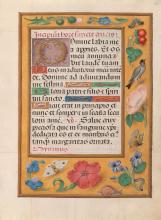 Domine labia me
a aperies. Et os
meum annuncia
bit laudem tuam
Deus in adiutorium meum in
tende. Domine ad adiuvandum
me festina
Gloria patri et filio et spiri
tui sancto Sicut erat in principio et
nunc et semper et in secula secu
lorum amen. Salve crux
preciosa que in
dicata es et ex membris eius
tamquam margaritis ornata.